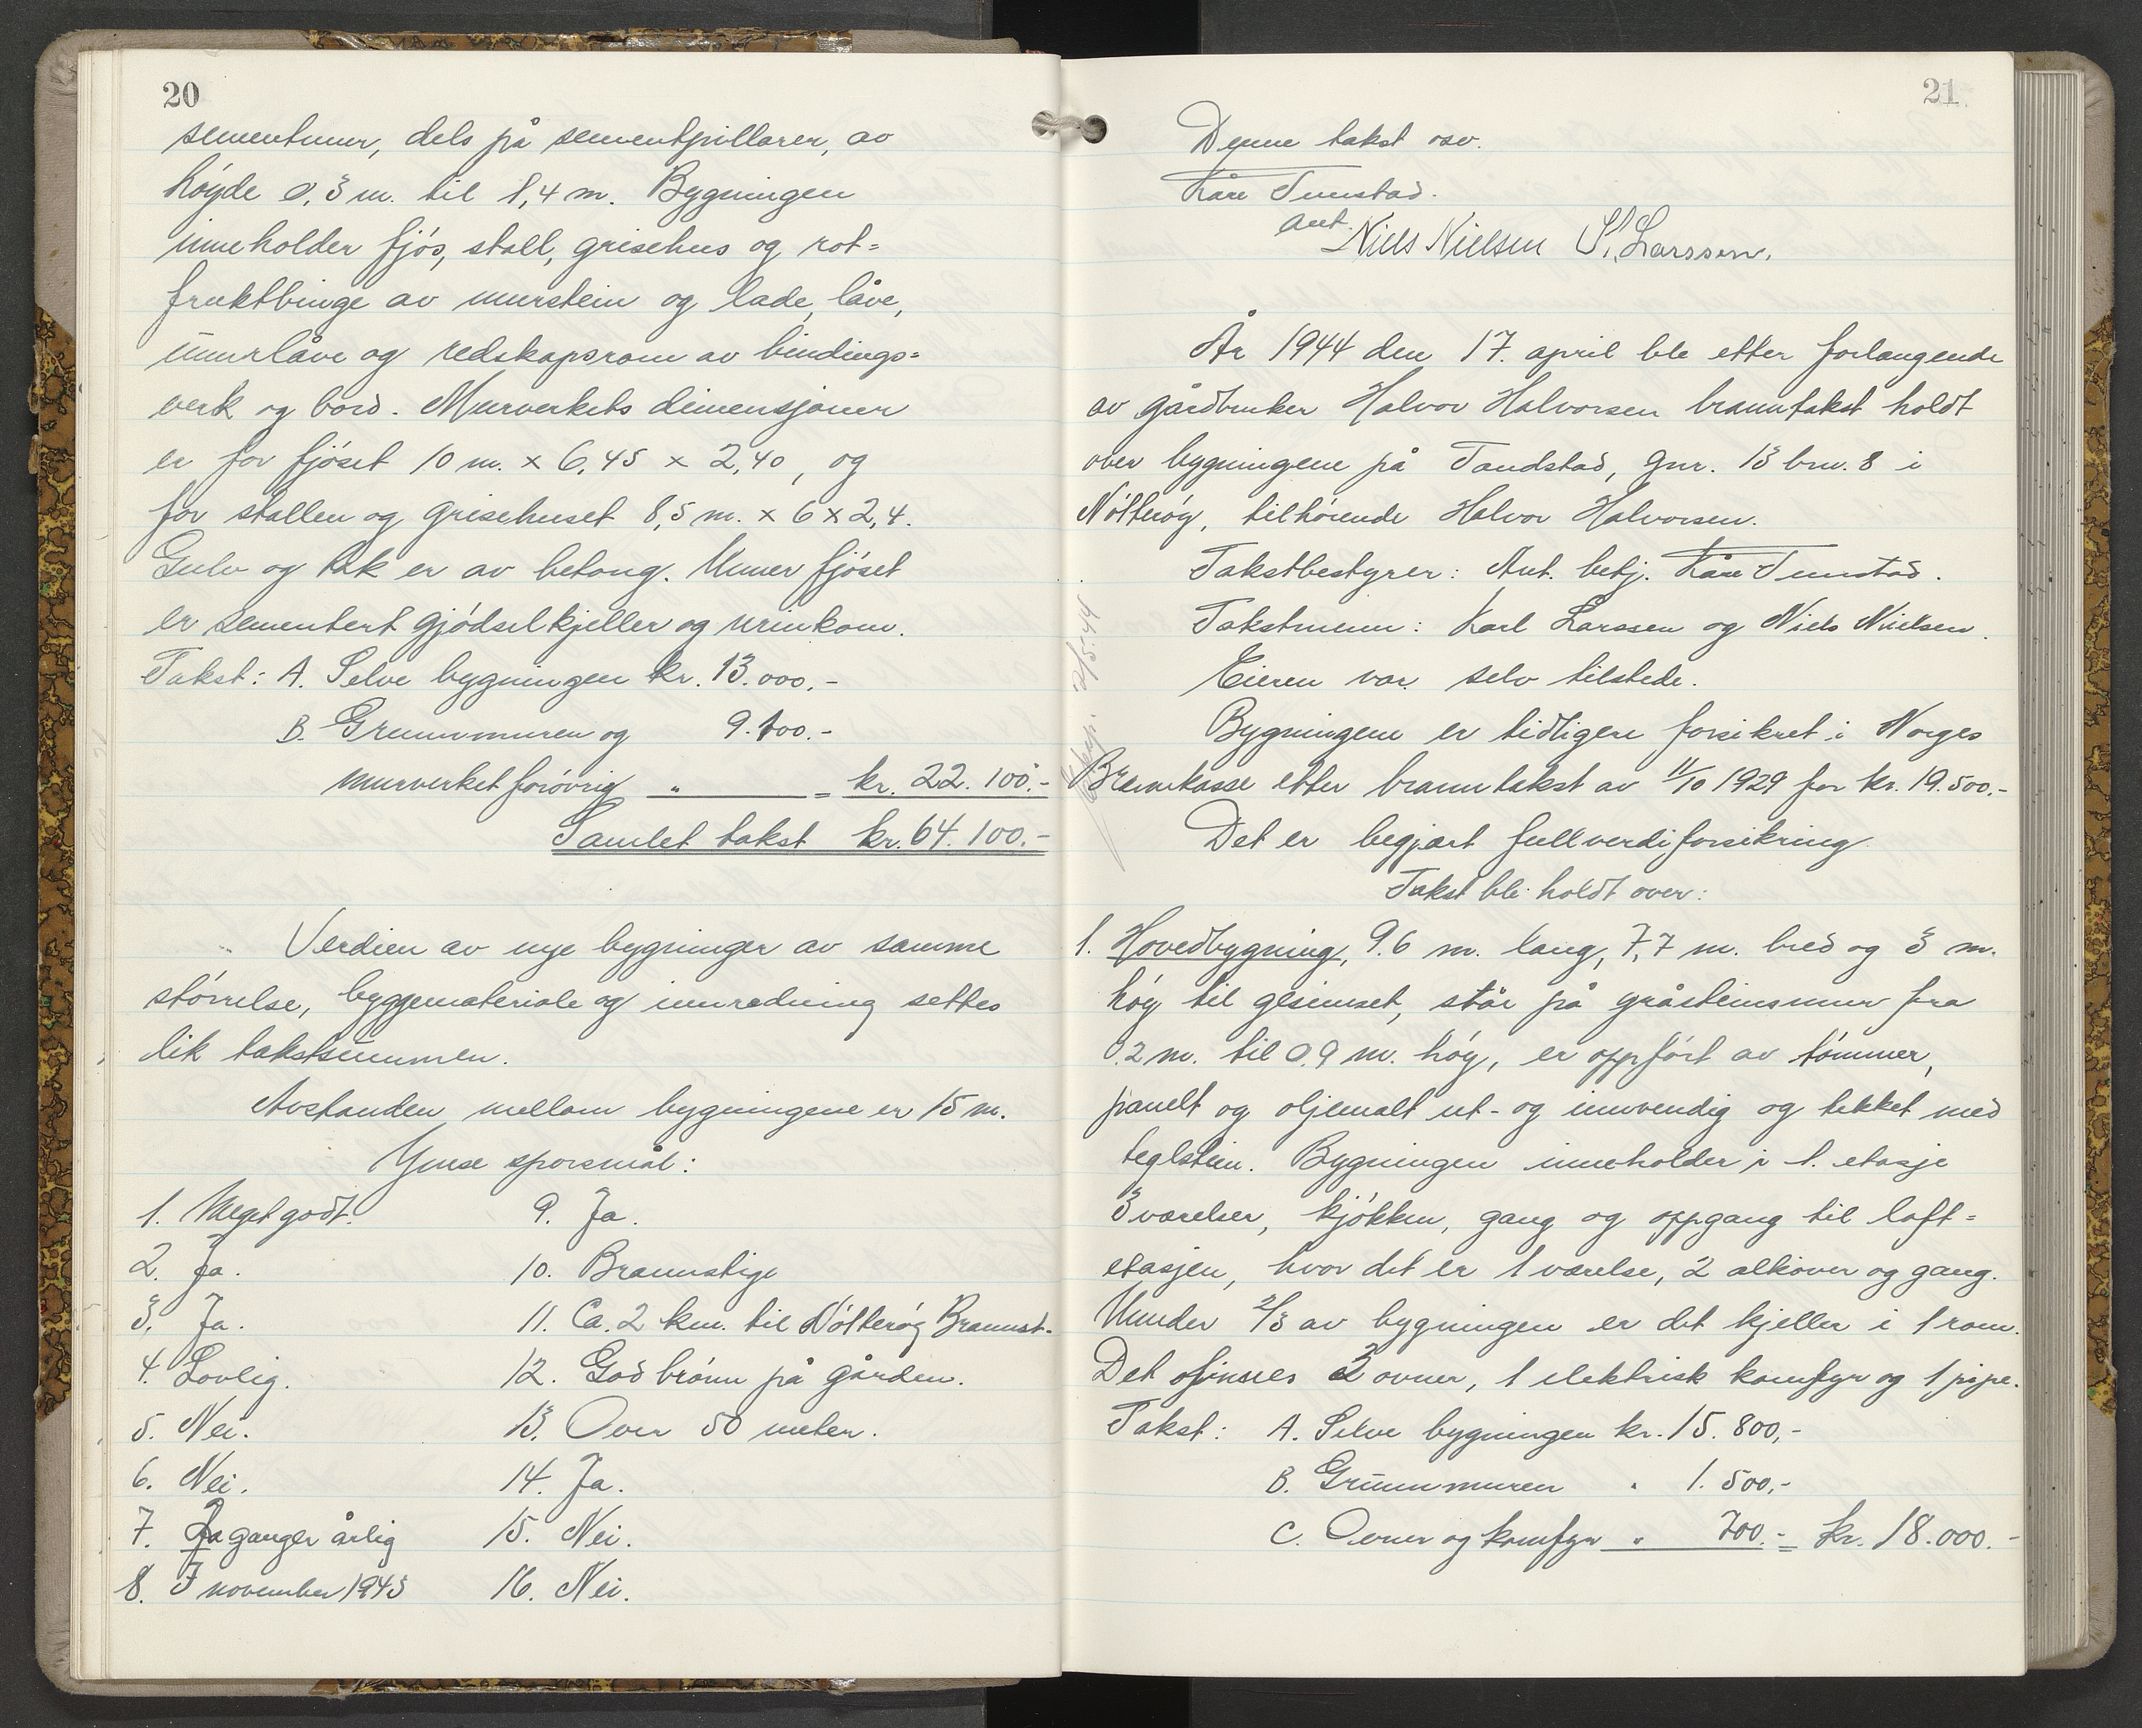 20
sementmur, dels på sementpillarer, av
høyde 0,3 m. til 1,4 m. Bygningen
inneholder fjøs, stall, grisehus og rot=
fruktbinge av murstein og lade, låve,
innerlåve og redskapsrom av bindings=
verk og bord. Murverkets dimensjoner
er for fjøset 10 m. x 6,45 x 2,40, og
for stallen og grisehuset 8,5 m. x 6 x 2,4.
Gulv og tak er av betong. Under fjøset
er sementert gjødselkjeller og urinkom.
Takst: A. Selve bygningen kr. 13.000,-
B. Grunnmuren og 9.100.-
murverket forøvrig " = kr. 22.100.-
Samlet takst kr. 64.100.-
Verdien av nye bygninger av samme
størrelse, byggemateriale og innredning settes
lik takstsummen.
Avstanden mellom bygningene er 15 m.
Ymse spørsmål:
1. Meget godt.
2. Ja.
3. Ja.
4. Lovlig.
5. Nei.
6. Nei.
7. ganger årlig
8. I november 1943
9. Ja.
10. Brannstige
11. Ca. 2 km. til Nøtterøy Brannst.
12. God brønn på gården.
13. Over 50 meter.
14. Ja.
15. Nei.
16. Nei.
21
Denne takst osv.
Kåre Tunstad.
ant.
Niels Nielsen S. Larssen.
År 1944 den 17. april ble etter forlangende
av gårdbruker Halvor Halvorsen branntakst holdt
over bygningene på Tandstad, gnr. 13 brn. 8 i
Nøtterøy, tilhørende Halvor Halvorsen.
Takstbestyrer: Ant. betj. Kåre Tunstad.
Takstmenn: Karl Larssen og Niels Nielsen.
Eieren var selv tilstede.
Bygningene er tidligere forsikret i Norges
Brannkasse etter branntakst av 11/10 1929 for kr. 19.500.-
Det er begjært fullverdiforsikring
Takst ble holdt over:
1. Hovedbygning, 9.6 m. lang, 7,7 m. bred og 3 m.
høy til gesimset, står på gråsteinsmur fra
0.2 m. til 0.9 m. høy, er oppført av tømmer,
panelt og oljemalt ut- og innvendig og tekket med
teglstein. Bygningen inneholder i 1. etasje
3 værelser, kjøkken, gang og oppgang til loft=
etasjen, hvor det er 1 værelse, 2 alkover og gang.
Under 2/3 av bygningen er det kjeller i 1 rom.
Det finnes 2 ovner, 1 elektrisk komfyr og 1 pipe.
Takst: A. Selve bygningen kr. 15.800,-
B. Grunnmuren " 1.500,-
C. Ovner og komfyr " 700.- = kr. 18.000.-